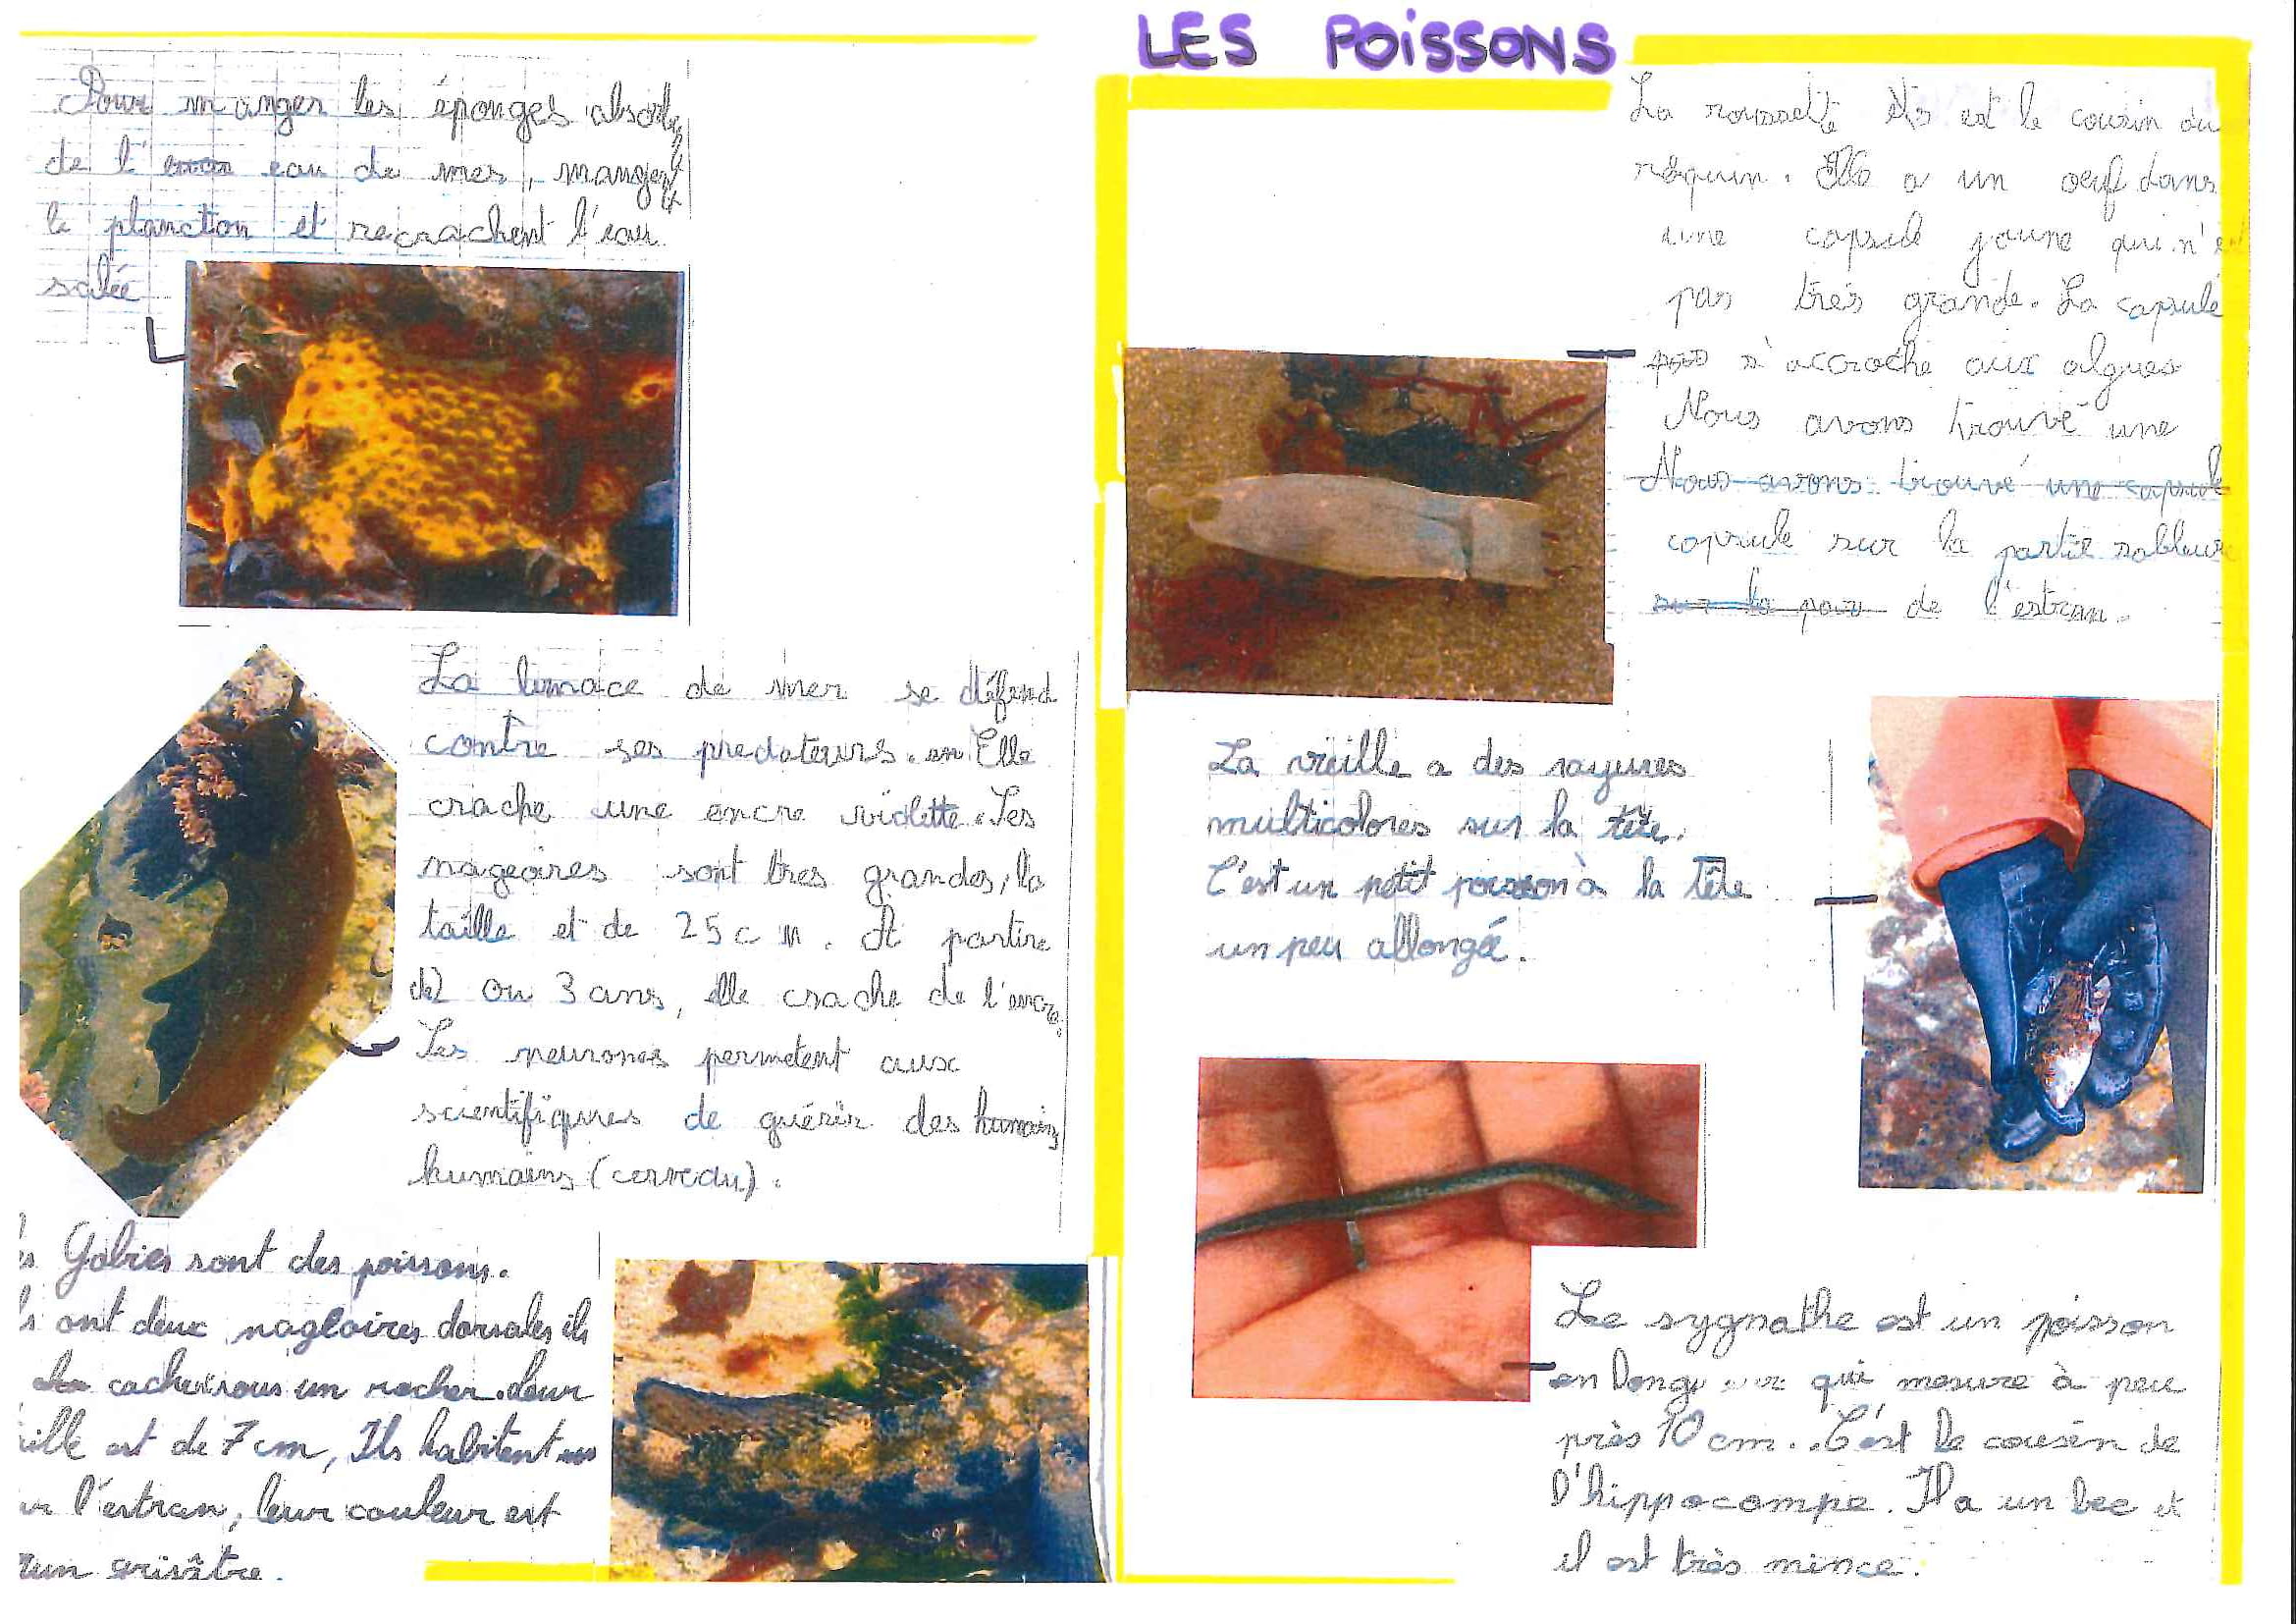 Pour manger les éponges absorbes
de l' eau de mes, mangent
le plancton et recrachent l'eau
salée
La limace de mer se défend
contre ses predateurs. en Elle
crache une encre violette. Ses
nageoires sont tres grandes, la
taille et de 25 cm. A partire
de 2 ou 3 ans, elle crache de l'encre.
Ses neurones permetent aux
scientifiques de guérir des humains
humains (cerveau).
es Gobies sont des poissons.
ls ont deux nageoires dorsales ils
cachent sous un rocher. leur
aille est de 7 cm, Ils habitent
ur l'estran, leur couleur est
run grisâtre.
LES POISSONS
La roussette est le cousin du
requin. Elle a un oeuf dans
une capsule jaune qui n'e
pas trés grande. La capsule
s'accroche aux algues
Nous avons trouvé une
Nous avons trouvé une capsule
capsule sur la partie sableuse
sur la par de l'estran.
La vieille a des rayures
multicolores sur la tête.
C'est un petit poisson à la tête
un peu allongée.
Le sygnathe est un poisson
en longueur qui mesure à peu
près 10 cm. C'est le cousin de
l'hippocampe. Il a un bec et
il est très mince.